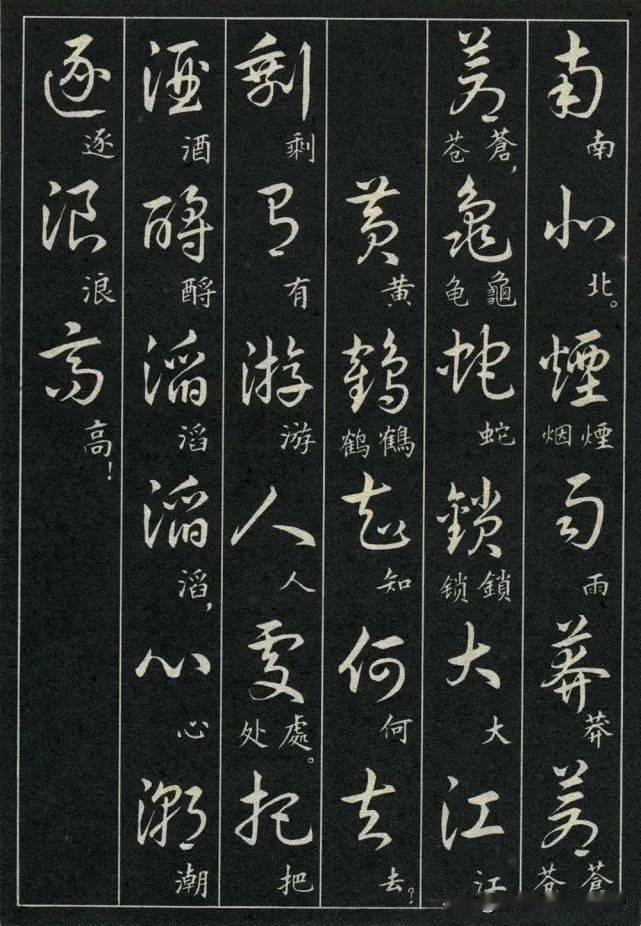 南 南 北 北。 煙 煙 烟 雨 雨 莽 莽 蒼 蒼 苍
蒼 蒼, 苍 龜 龜 龟 蛇 蛇 鎖 鎖 锁 大 大 江 江
黄 黄 鶴 鶴 鹤 知 知 何 何 去 去?
剩 剩 有 有 游 游 人 人 處 處。 处 把 把
酒 酒 酹 酹 滔 滔 滔 滔, 心 心 潮 潮
逐 逐 浪 浪 高 高!